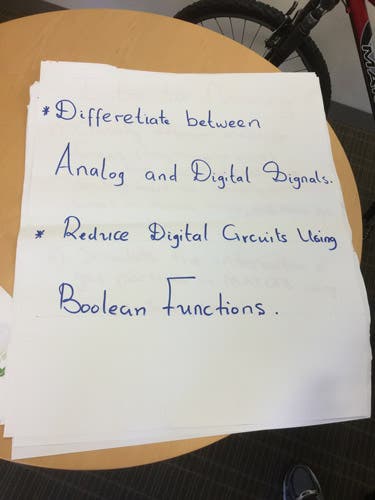 * Differetiate between
Analog and Digital Signals.
* Reduce Digital Circuits Using
Boolean Functions.